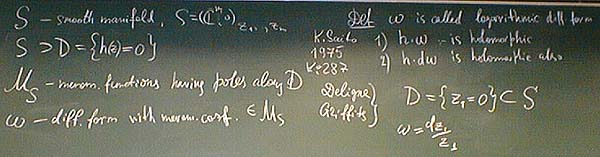 S – smooth manifold, S=(ℂᵐ,0) z₁,..., zₘ
S ⊃ D = {h(z)=0}
M_S – merom. functions having poles along D
ω – diff. form with merom. coef. ∈ M_S
K. Saito
1975
K. 287
Deligne
Griffits
Def ω is called logarithmic diff form
1) h·ω – is holomorphic
2) h·dω is holomorphic also
D = {z₁=0} ⊂ S
ω = dz₁/z₁